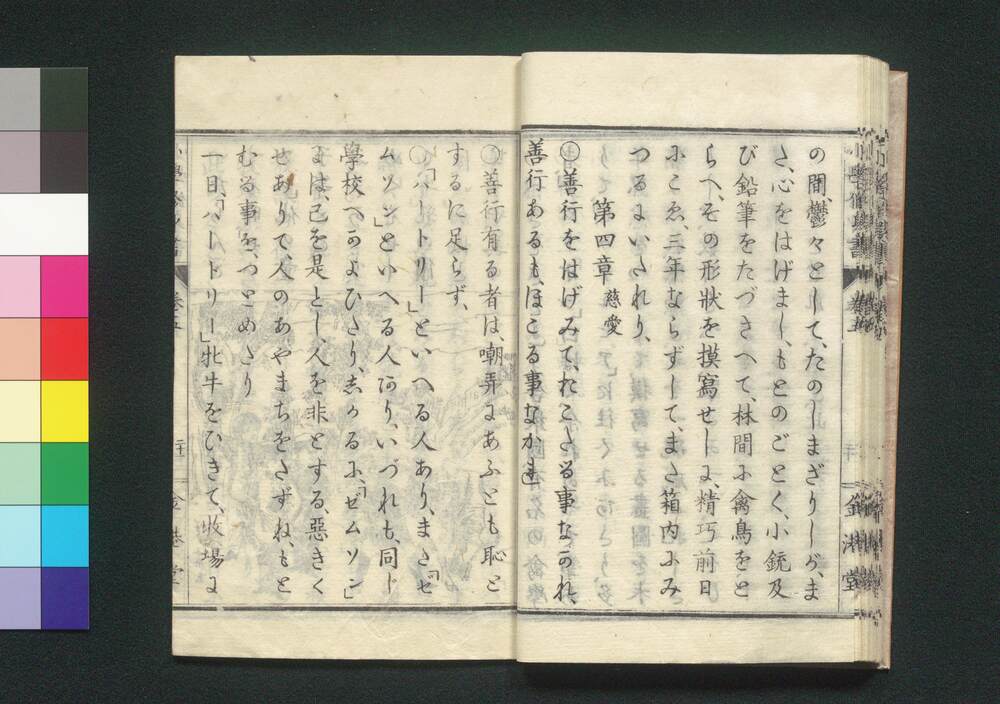 の間、鬱々として、たのしまざりしが、ま
た、心をはげまし、もとのごとく、小銃及
び鉛筆をたづさへて、林間に禽鳥をと
らへ、その形狀を摸寫せしに、精巧前日
にこえ、三年ならずして、また箱内にみ
つるにいたれり、
第四章 慈愛
◯善行をはげみて、おこたる事なかれ、
善行あるも、ほこる事なかれ
◯善行有る者は、嘲弄にあふとも恥と
するに足らず、
◯「ハートリー」といへる人あり、また「ゼ
ムソン」といへる人あり、いづれも、同じ
學校へかよひたり、しかるに、「ゼムソン」
は、己を是とし、人を非とする、惡きく
せありて、人のあやまちをたずね、もと
むる事を、つとめたり
一日、「ハートリー」牝牛をひきて、牧場に
小學修身書
卷五
錦港堂